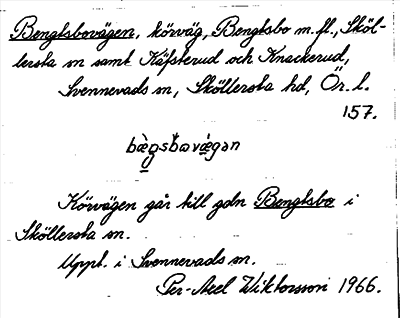 Bengtsbovägen, körväg, Bengtsbo m.fl., Sköl-
lersta sn samt Käfsterud och Knackerud,
Svennevads sn, Sköllersta hd, Ör. l.
157.
bægsbovægən
Körvägen går till gdn Bengtsbo i
Sköllersta sn.
Uppt. i Svennevads sn.
Per-Axel Wiktorsson 1966.